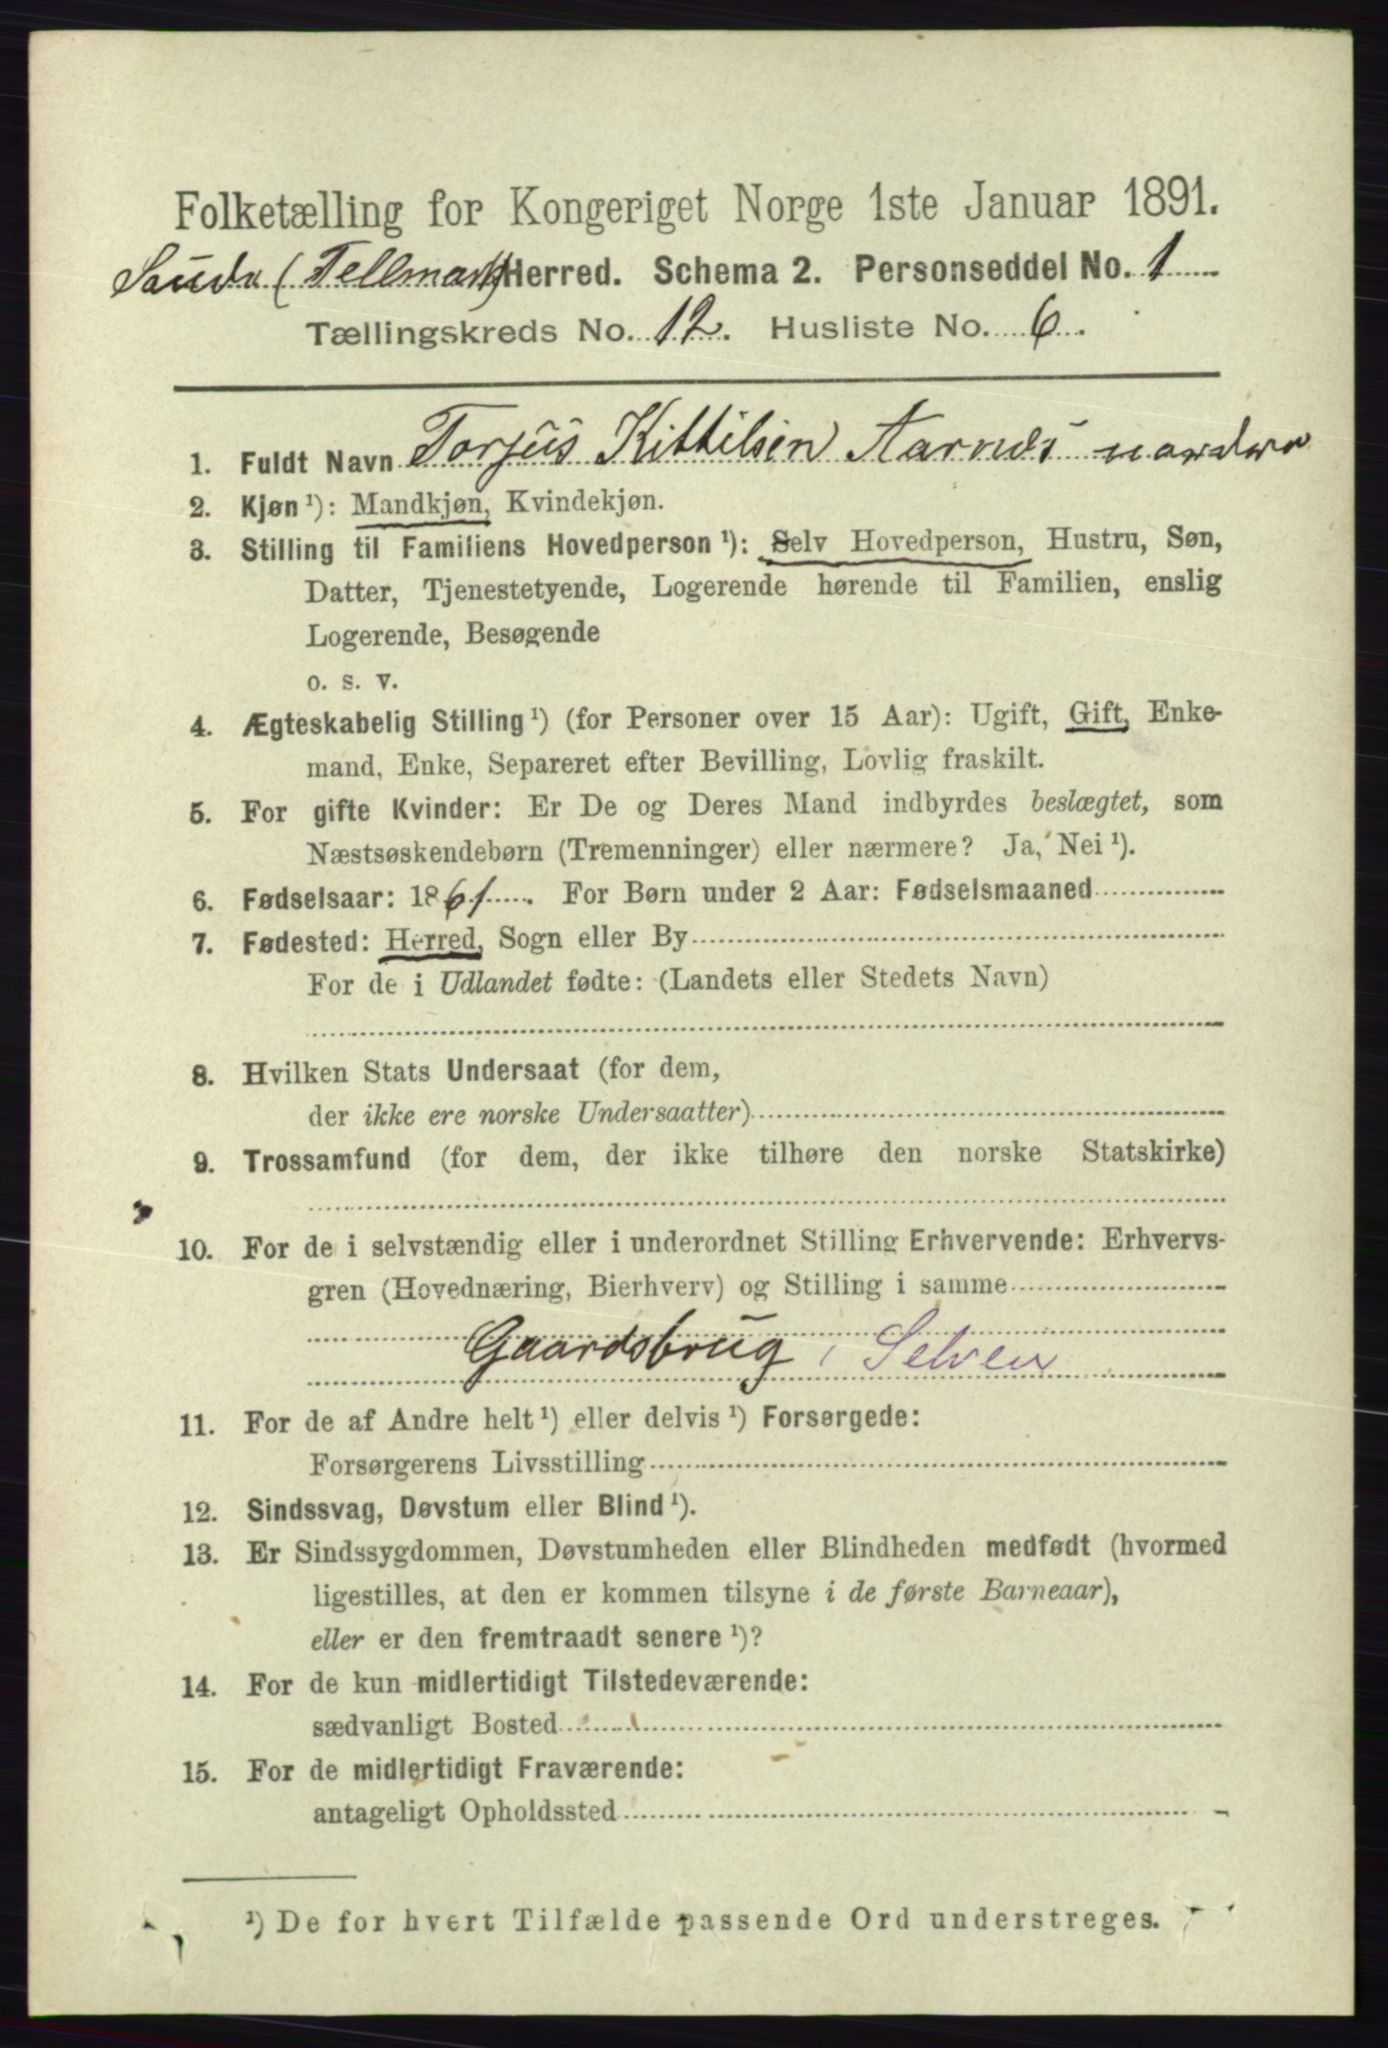 Folketælling for Kongeriget Norge 1ste Januar 1891.
Saude (Tellmark) Herred. Schema 2. Personseddel No. 1
Tællingskreds No. 12. Husliste No. 6.
1. Fuldt Navn Torjus Kittilsen Aarnes nordre
2. Kjøn ¹): Mandkjøn, Kvindekjøn.
3. Stilling til Familiens Hovedperson ¹): Selv Hovedperson, Hustru, Søn,
Datter, Tjenestetyende, Logerende hørende til Familien, enslig
Logerende, Besøgende
o. s. v.
4. Ægteskabelig Stilling ¹) (for Personer over 15 Aar): Ugift, Gift, Enke-
mand, Enke, Separeret efter Bevilling, Lovlig fraskilt.
5. For gifte Kvinder: Er De og Deres Mand indbyrdes beslægtet, som
Næstsøskendebørn (Tremenninger) eller nærmere? Ja, Nei ¹).
6. Fødselsaar: 1861. For Børn under 2 Aar: Fødselsmaaned
7. Fødested: Herred, Sogn eller By
For de i Udlandet fødte: (Landets eller Stedets Navn)
8. Hvilken Stats Undersaat (for dem,
der ikke ere norske Undersaatter)
9. Trossamfund (for dem, der ikke tilhøre den norske Statskirke)
10. For de i selvstændig eller i underordnet Stilling Erhvervende: Erhvervs-
gren (Hovednæring, Bierhverv) og Stilling i samme
Gaardsbrug, Selveier
11. For de af Andre helt ¹) eller delvis ¹) Forsørgede:
Forsørgerens Livsstilling
12. Sindssvag, Døvstum eller Blind ¹).
13. Er Sindssygdommen, Døvstumheden eller Blindheden medfødt (hvormed
ligestilles, at den er kommen tilsyne i de første Barneaar),
eller er den fremtraadt senere ¹)?
14. For de kun midlertidigt Tilstedeværende:
sædvanligt Bosted
15. For de midlertidigt Fraværende:
antageligt Opholdssted
¹) De for hvert Tilfælde passende Ord understreges.